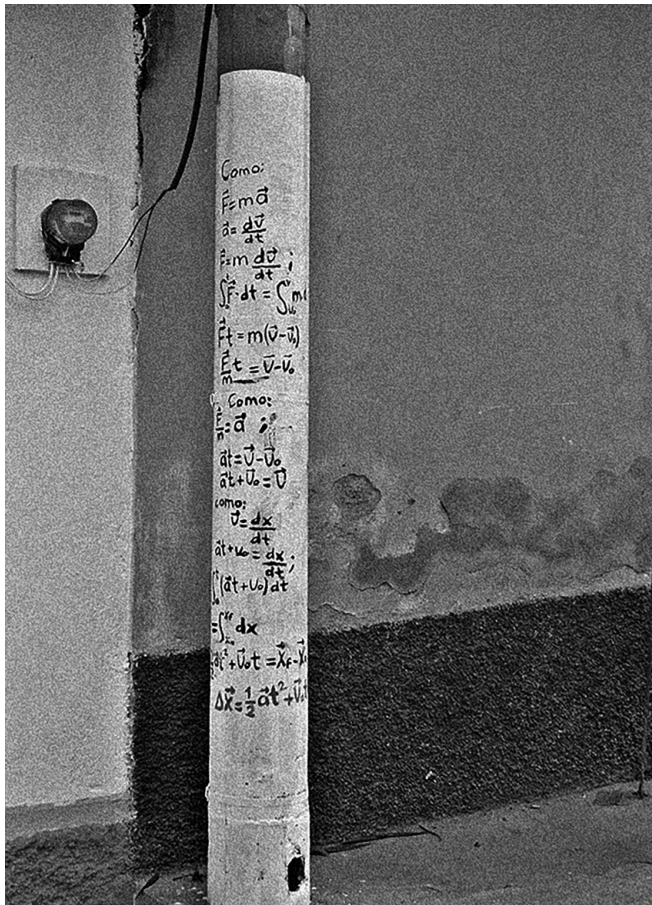 Como:
F⃗=ma⃗
a⃗=dv⃗/dt
F⃗=m dv⃗/dt ;
∫F⃗·dt = ∫m
F⃗t=m(v⃗-v⃗₀)
F⃗/m t = v⃗-v⃗₀
Como:
F⃗/m=a⃗ ;
a⃗t=v⃗-v⃗₀
a⃗t+v⃗₀=v⃗
como:
v⃗=dx/dt
a⃗t+v₀=dx/dt ;
∫₀ᵗ(a⃗t+v₀)dt
=∫dx
½a⃗t²+v⃗₀t=x⃗F-x⃗
Δx⃗=½a⃗t²+v⃗₀t